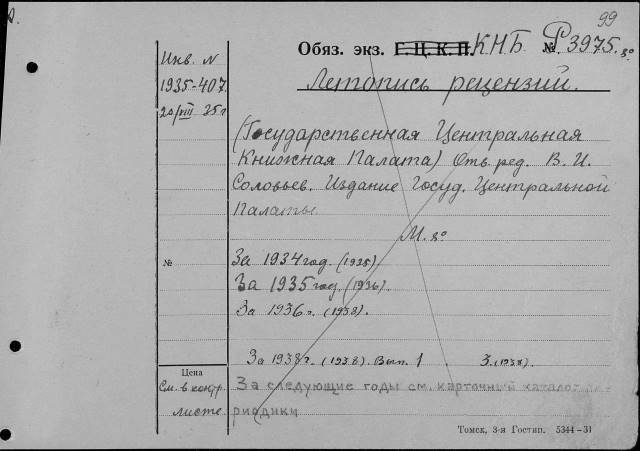 99
Обяз. экз. Г.Ц.К.П. КНБ № Р3975. 8°
Инв. N
1935-407
20/VIII 35г
Летопись рецензий.
(Государственная Центральная
Книжная Палата) Отв. ред. В. И.
Соловьев. Издание Госуд. Центральной
Палаты.
М. 8°
№
За 1934 год. (1935)
За 1935 год. (1936).
За 1936 г. (1938).
За 1938 г. (1938). Вып. 1 . 3. (1938).
Цена
См. в контр.
листе.
За следующие годы см. карточный каталог пе-
риодики
Томск, 3-я Гостип. 5344–31